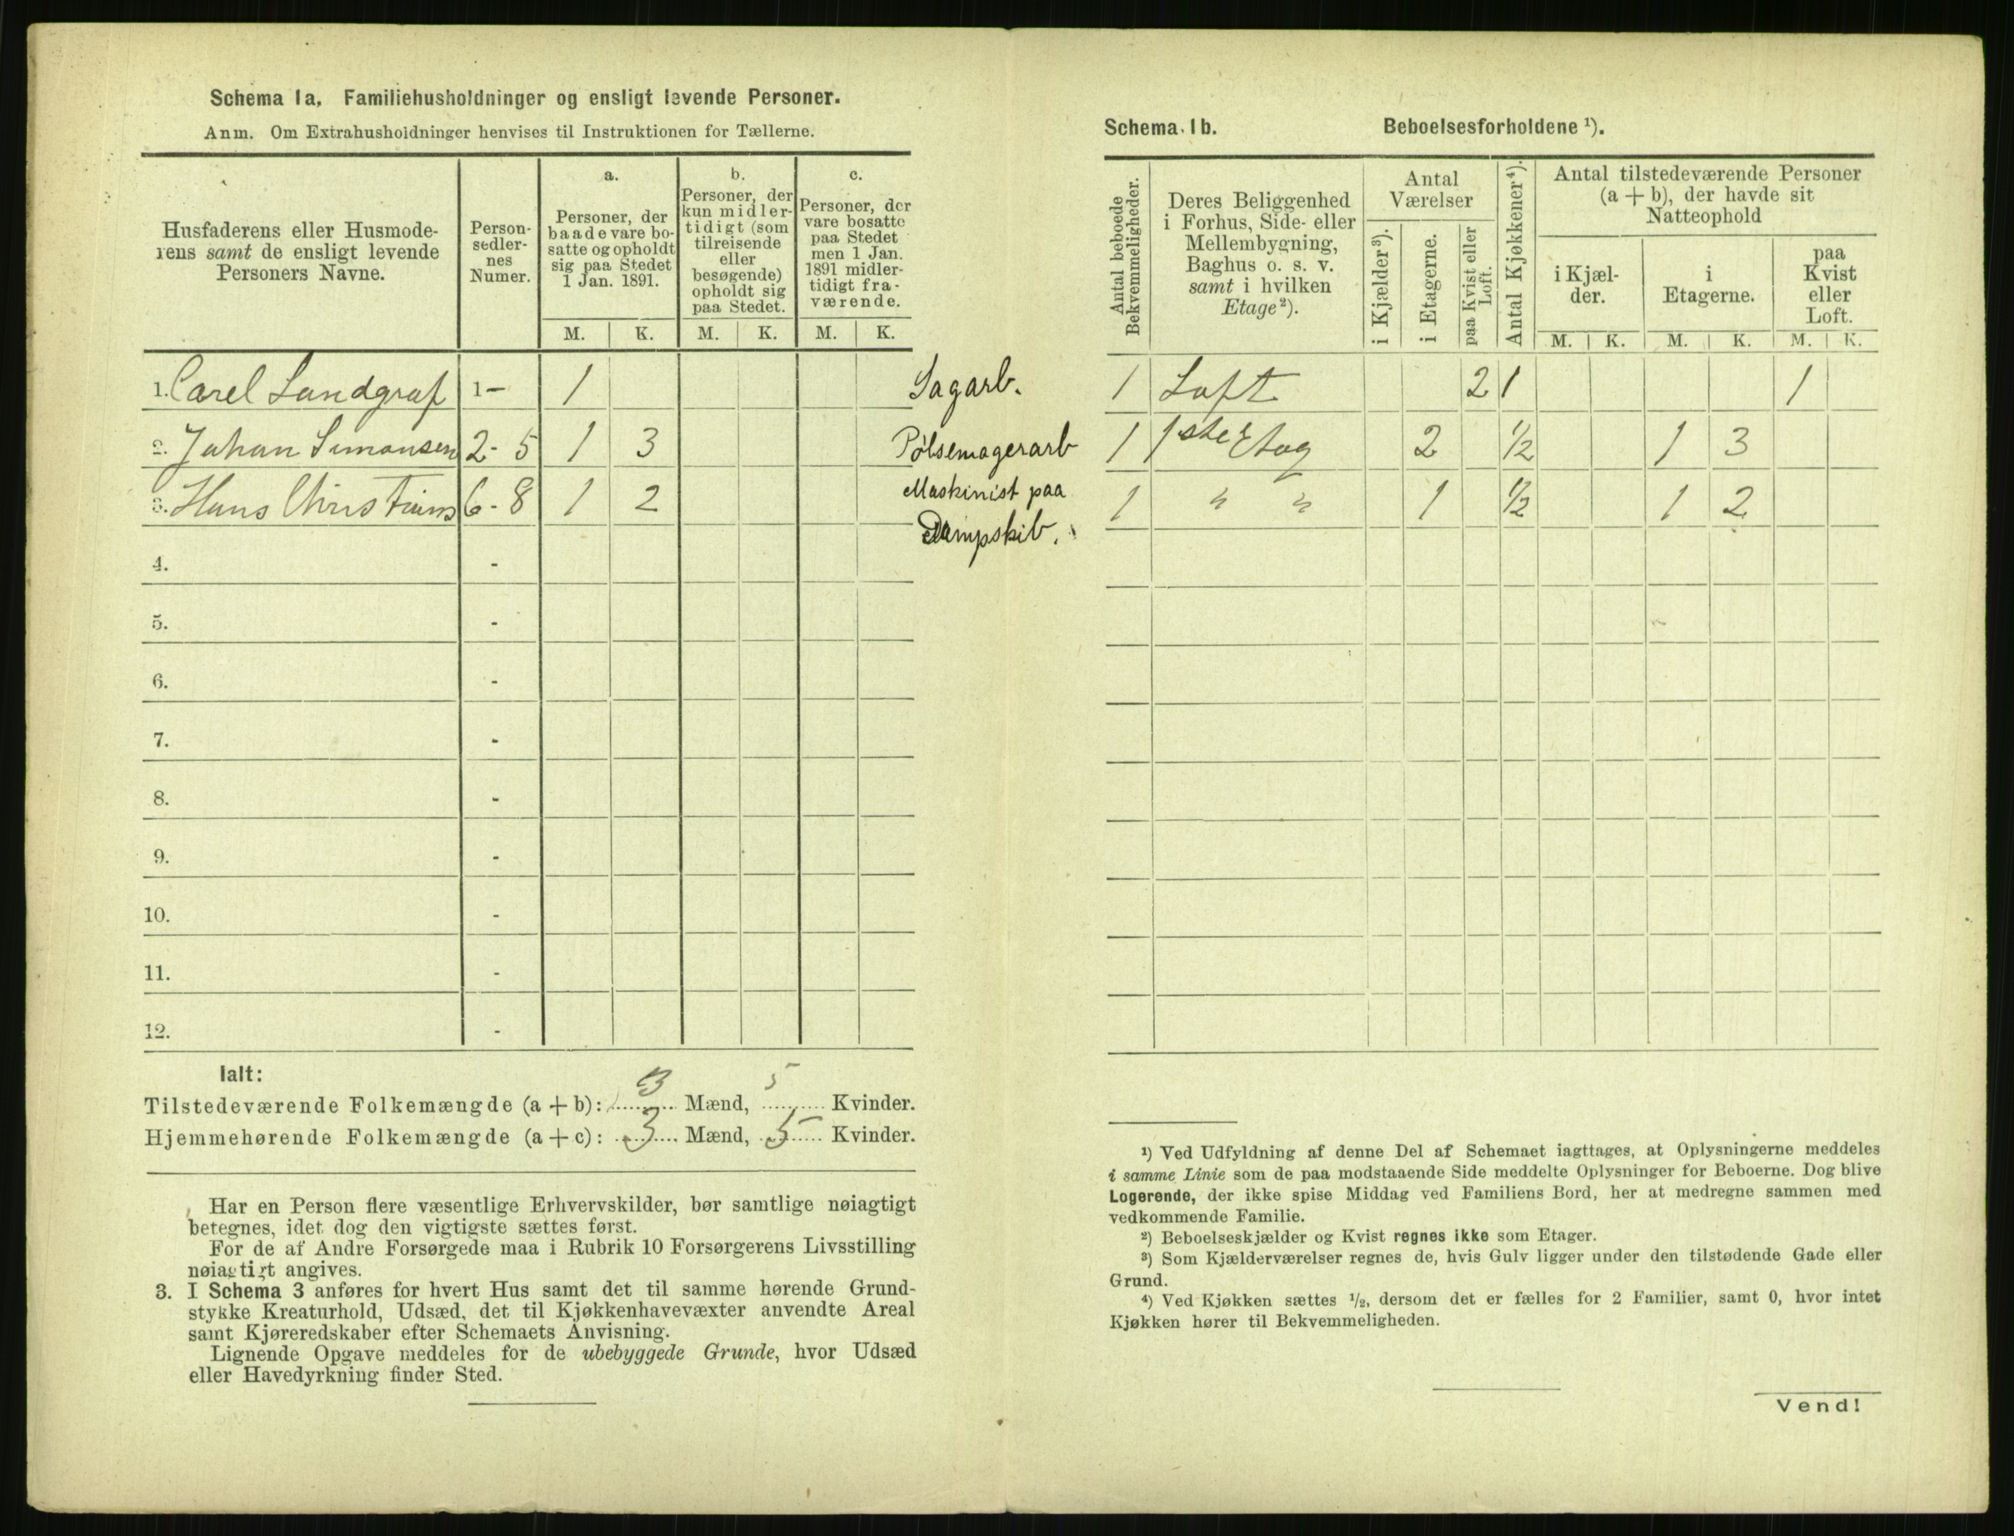 Schema 1a. Familiehusholdninger og ensligt levende Personer.
Anm. Om Extrahusholdninger henvises til Instruktionen for Tællerne.
Husfaderens eller Husmode-
rens samt de ensligt levende
Personers Navne.
Person-
sedler-
nes
Numer.
a.
Personer, der
baade vare bo-
satte og opholdt
sig paa Stedet
1 Jan. 1891.
b.
Personer, der
kun midler-
tidigt (som
tilreisende
eller
besøgende)
opholdt sig
paa Stedet.
c.
Personer, der
vare bosatte
paa Stedet
men 1 Jan.
1891 midler-
tidigt fra-
værende.
M. K. M. K. M. K.
1. Carel Landgraf 1- 1 Sagarb.
2. Johan Simonsen 2-5 1 3 Pølsemagerarb
3. Hans Christians 6-8 1 2 Maskinist paa
Dampskib.
4. -
5. -
6. -
7. -
8. -
9. -
10. -
11. -
12. -
Ialt:
Tilstedeværende Folkemængde (a + b): 3 Mænd, 5 Kvinder.
Hjemmehørende Folkemængde (a + c): 3 Mænd, 5 Kvinder.
Har en Person flere væsentlige Erhvervskilder, bør samtlige nøiagtigt
betegnes, idet dog den vigtigste sættes først.
For de af Andre Forsørgede maa i Rubrik 10 Forsørgerens Livsstilling
nøiagtigt angives.
3. I Schema 3 anføres for hvert Hus samt det til samme hørende Grund-
stykke Kreaturhold, Udsæd, det til Kjøkkenhavevæxter anvendte Areal
samt Kjøreredskaber efter Schemaets Anvisning.
Lignende Opgave meddeles for de ubebyggede Grunde, hvor Udsæd
eller Havedyrkning finder Sted.
Schema 1b. Beboelsesforholdene ¹).
Antal beboede
Bekvemmeligheder.
Deres Beliggenhed
i Forhus, Side- eller
Mellembygning,
Baghus o. s. v.
samt i hvilken
Etage²).
Antal
Værelser
i Kjælder³).
i Etagerne.
paa Kvist eller
Loft.
Antal Kjøkkener⁴).
Antal tilstedeværende Personer
(a + b), der havde sit
Natteophold
i Kjæl-
der.
i
Etagerne.
paa
Kvist
eller
Loft.
M. K. M. K. M. K.
1 Loft 2 1 1
1 1ste Etag 2 ½ 1 3
1 " " 1 ½ 1 2
¹) Ved Udfyldning af denne Del af Schemaet iagttages, at Oplysningerne meddeles
i samme Linie som de paa modstaaende Side meddelte Oplysninger for Beboerne. Dog blive
Logerende, der ikke spise Middag ved Familiens Bord, her at medregne sammen med
vedkommende Familie.
²) Beboelseskjælder og Kvist regnes ikke som Etager.
³) Som Kjælderværelser regnes de, hvis Gulv ligger under den tilstødende Gade eller
Grund.
⁴) Ved Kjøkken sættes ¹/₂, dersom det er fælles for 2 Familier, samt 0, hvor intet
Kjøkken hører til Bekvemmeligheden.
Vend!